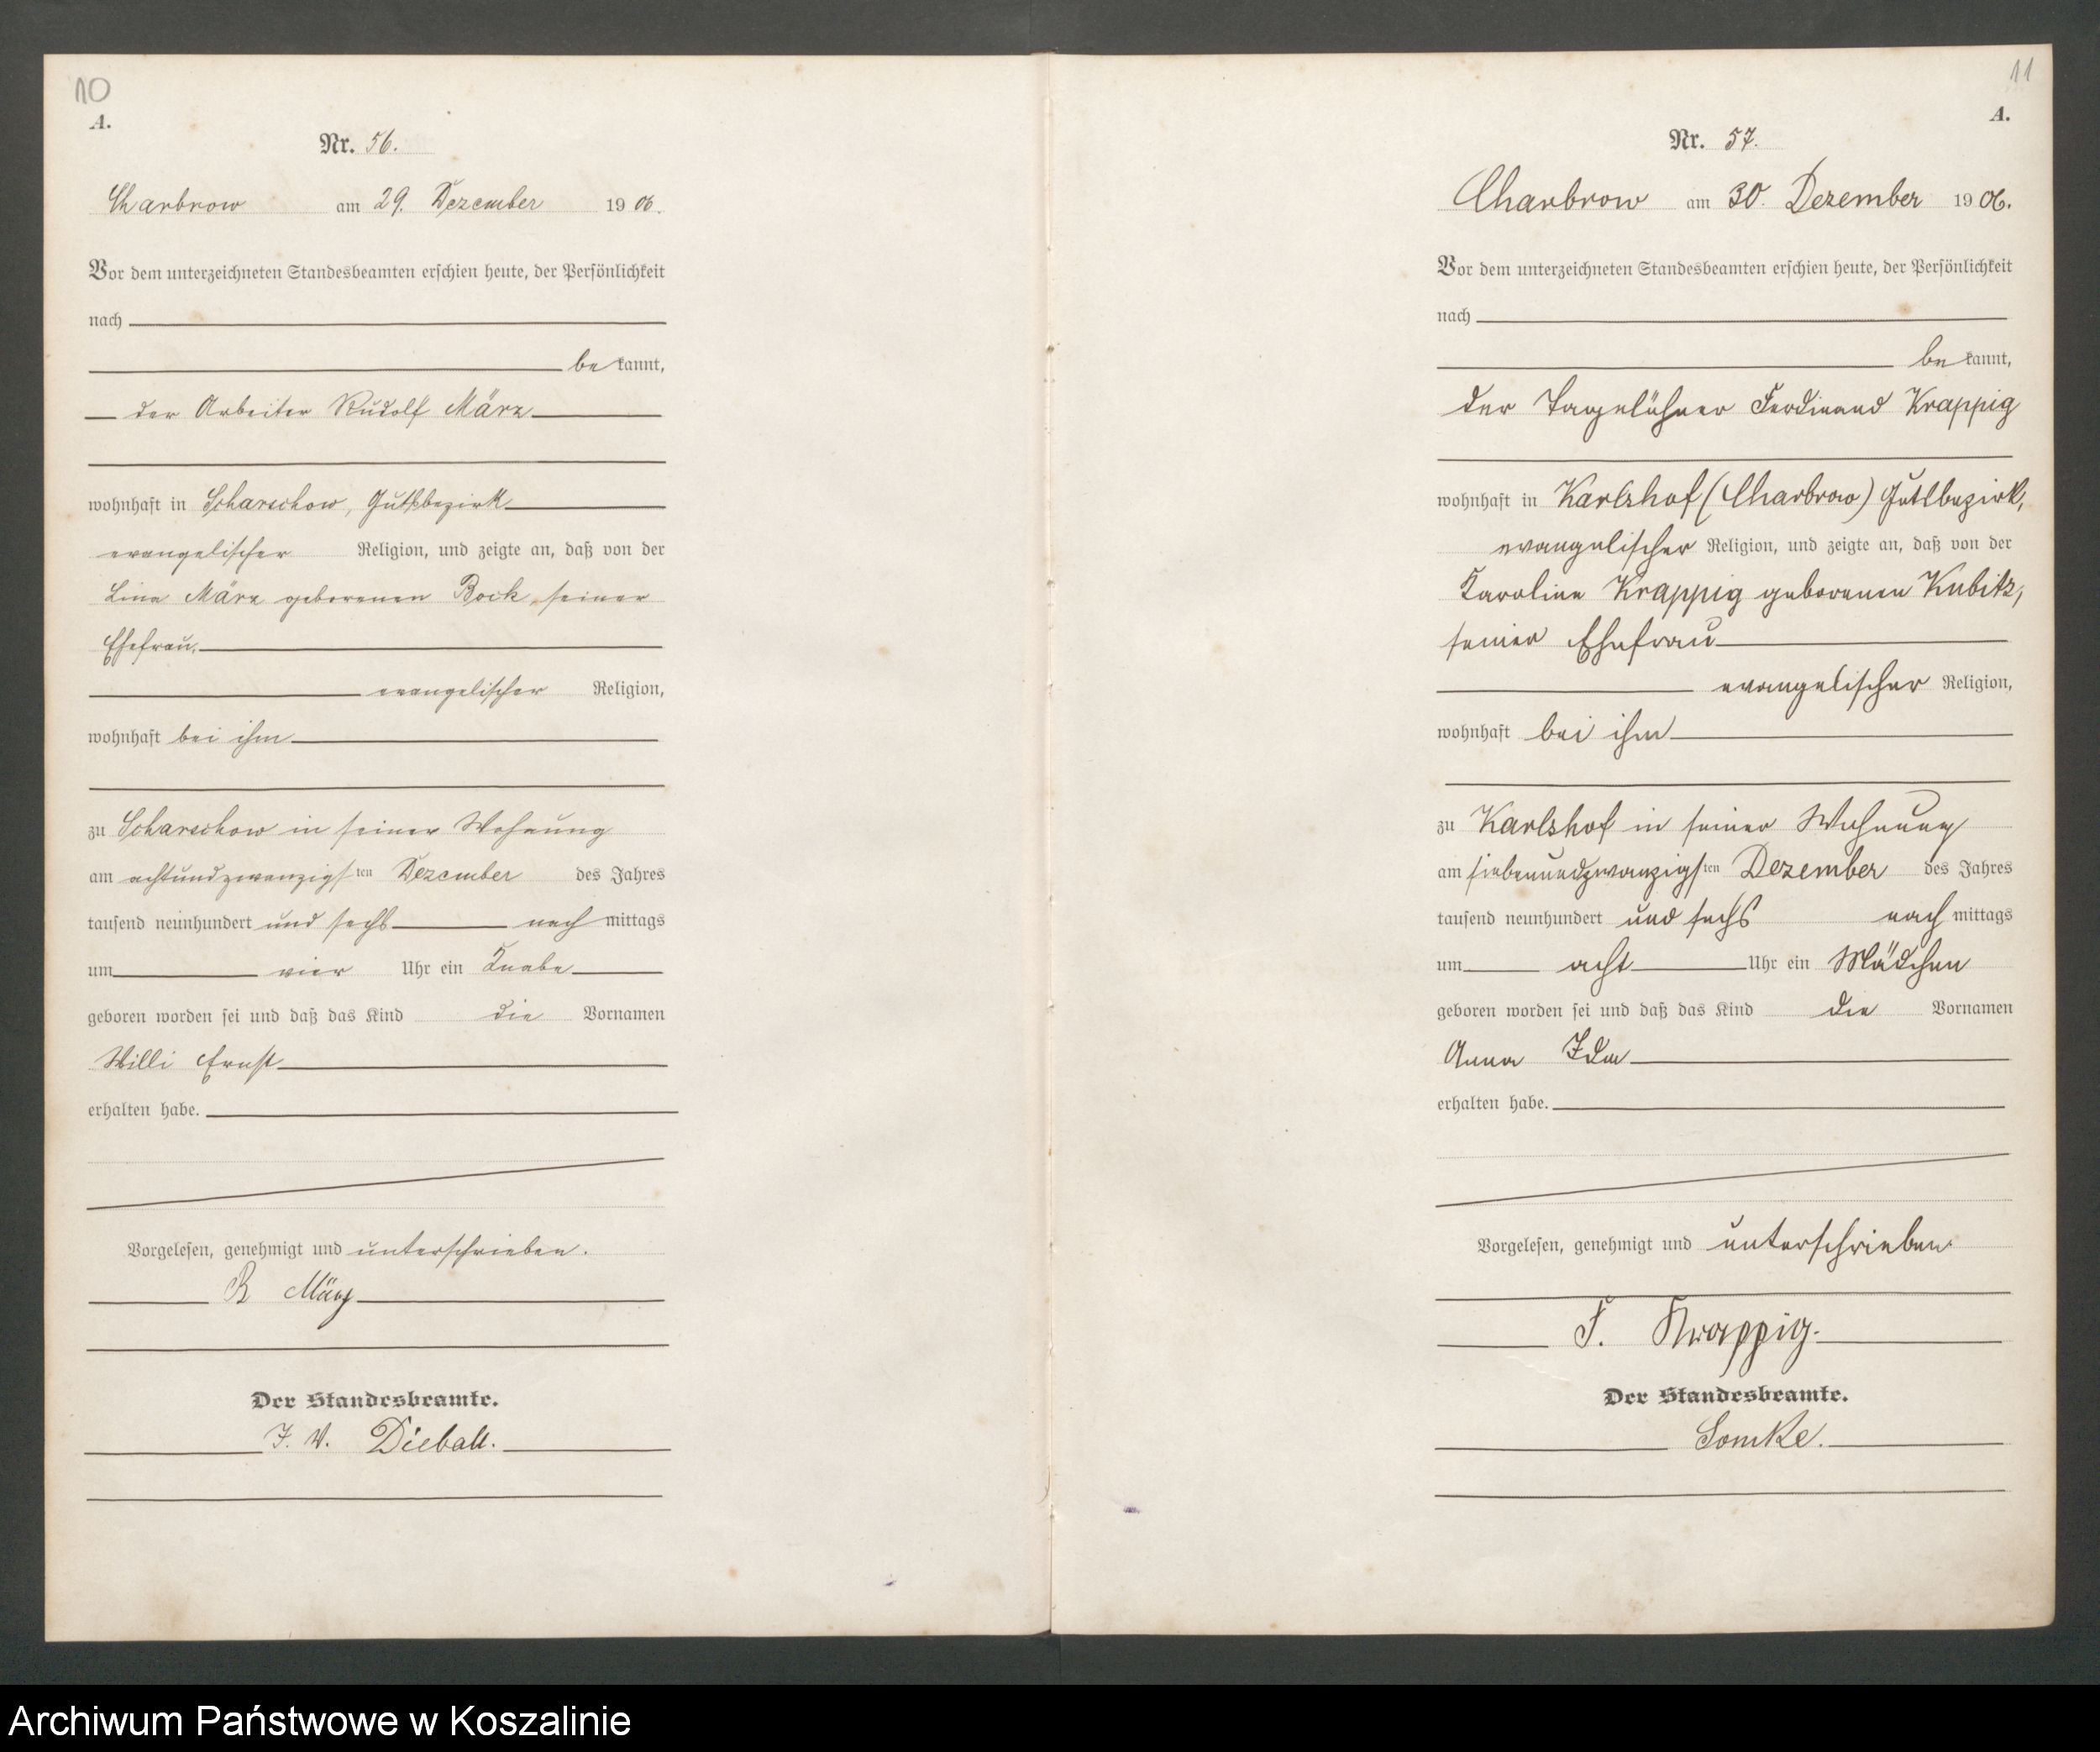 10
A.
Nr. 56.
Charbrow am 29. Dezember 1906.
Vor dem unterzeichneten Standesbeamten erschien heute, der Persönlichkeit
nach
bekannt,
der Arbeiter Rudolf März
wohnhaft in Scharschow, Gutsbezirk
evangelischer Religion, und zeigte an, daß von der
Lina März geborenen Bock, seiner
Ehefrau,
evangelischer Religion,
wohnhaft bei ihm
zu Scharschow in seiner Wohnung
am achtundzwanzigsten Dezember des Jahres
tausend neunhundert und sechs nachmittags
um vier Uhr ein Knabe
geboren worden sei und daß das Kind die Vornamen
Willi Ernst
erhalten habe.
Vorgelesen, genehmigt und unterschrieben.
R März
Der Standesbeamte.
J. V. Dieball.
11
A.
Nr. 57.
Charbrow am 30. Dezember 1906.
Vor dem unterzeichneten Standesbeamten erschien heute, der Persönlichkeit
nach
bekannt,
der Tagelöhner Ferdinand Krappig
wohnhaft in Karlshof (Charbrow) Gutsbezirk,
evangelischer Religion, und zeigte an, daß von der
Karoline Krappig geborenen Kubitz,
seiner Ehefrau
evangelischer Religion,
wohnhaft bei ihm
zu Karlshof in seiner Wohnung
am siebenundzwanzigsten Dezember des Jahres
tausend neunhundert und sechs nachmittags
um acht Uhr ein Mädchen
geboren worden sei und daß das Kind die Vornamen
Anna Ida
erhalten habe.
Vorgelesen, genehmigt und unterschrieben
F. Krappig.
Der Standesbeamte.
Lomke.
Archiwum Państwowe w Koszalinie